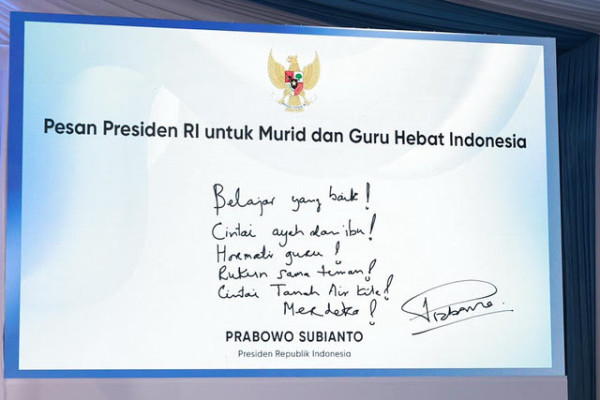 Pesan Presiden RI untuk Murid dan Guru Hebat Indonesia
Belajar yang baik!
Cintai ayah dan ibu!
Hormati guru!
Rukun sama teman!
Cintai Tanah Air kita!
Merdeka!
PRABOWO SUBIANTO
Presiden Republik Indonesia